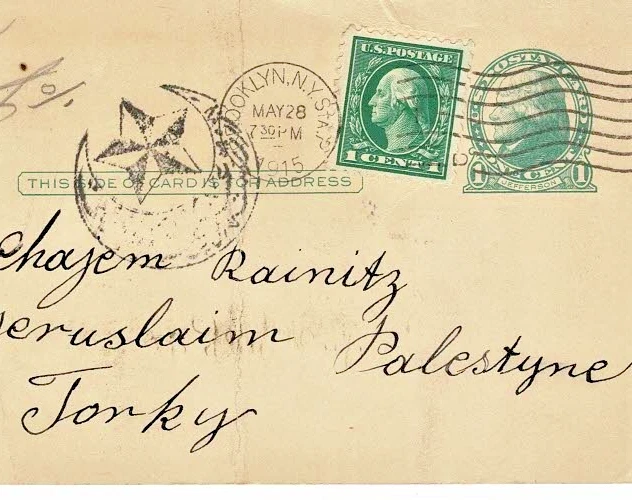 U.S. POSTAGE
1 CENT 1
BROOKLYN, N.Y. STA.
MAY 28
7 30 PM
1915
POSTAL CARD
1 JEFFERSON 1
THIS SIDE OF CARD IS FOR ADDRESS
Chajem Rainitz
Jeruslaim Palestyne
Torky